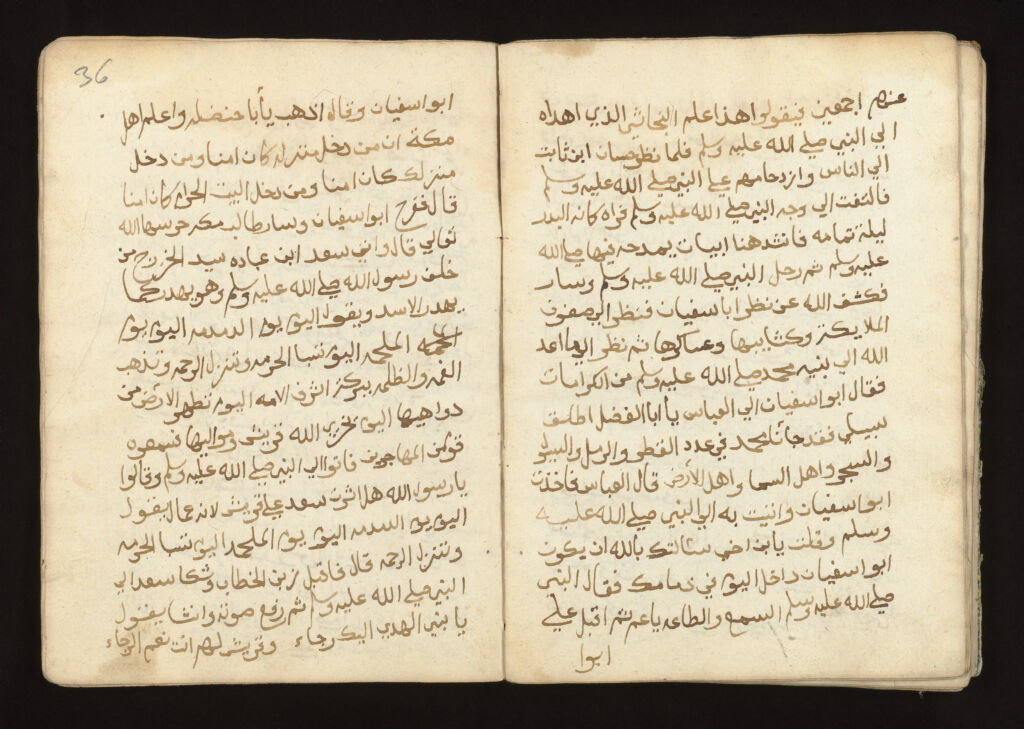 عنهم اجمعين فيقولوا هذا علم النجاشي الذي اهداه
الي النبي صلي الله عليه وسلم فلما نظر حسان ابن ثابت
الي الناس وازدحامهم علي النبي صلي الله عليه وسلم
فالتفت الي وجه النبي صلي الله عليه وسلم فراه كانه البدر
ليلة تمامه فانشد هنا ابيات يمدحه فيها صلي الله
عليه وسلم ثم رحل النبي صلي الله عليه وسلم وسار
فكشف الله عن نظر ابا سفيان فنظر الي صفوف
الملايكة وكتاييبها وعساكرها ثم نظر الي ما اعد
الله الي نبيه محمد صلي الله عليه وسلم من الكرامات
فقال ابوا سفيان الي العباس يا أبا الفضل اطلق
سبيلي فقد جأنا محمد في عدد القطر والرمل والسيل
والشجر واهل السما واهل الأرض قال العباس فاخذت
ابوا سفيان واتيت به الي النبي صلي الله عليه
وسلم وقلت يا بن اخي سئالتك بالله ان يكون
ابوا سفيان داخل اليوم في ذمامك فقال النبي
صلي الله عليه وسلم السمع والطاعه يا عم ثم اقبل علي
ابوا
36
ابوا سفيان وقال له اذهب يأبا حنضله واعلم اهل
مكة ان من دخل منزله كان امنا ومن دخل
منزلك كان امنا ومن دخل البيت الحرام كان امنا
قال فخرج ابوا سفيان وسار طالب مكه حرسها الله
تعالي قال واتي سعد ابن عباده سيد الخزرج من
خلف رسول الله صلي الله عليه وسلم وهو يهدر كما
يهدر الاسد ويقول اليوم يوم الدمدمه اليوم يوم
الملحمه اليوم تسبا الحرمه وتنزل الرحمه وتذهب
الغمه والظلمه ببركة اشرف الامه اليوم تطهر الأرض من
دواهيها اليوم يخزي الله قريش ومواليها فسمعوه
قوم من المهاجرين فاتوا الي النبي صلي الله عليه وسلم وقالوا
يا رسول الله هل اثرت سعد علي قريش لانه عمال يقول
اليوم يوم الدمدمه اليوم يوم الملحمه اليوم تسبا الحرمه
وتنزل الرحمه قال فاقبل بن الخطاب وشكا سعد الي
النبي صلي الله عليه وسلم ثم رفع صوته وانشا يقول
يا نبي الهدي اليك رجاء وقريش لهم انت نعم الرجاء